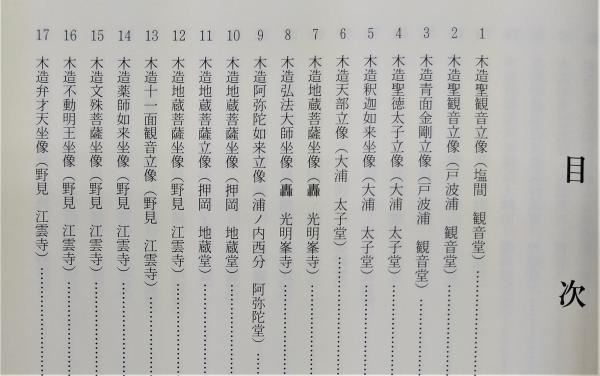 目次
1 木造聖観音立像(塩間 観音堂)………
2 木造聖観音立像(戸波浦 観音堂)………
3 木造青面金剛立像(戸波浦 観音堂)………
4 木造聖徳太子立像(大浦 太子堂)………
5 木造釈迦如来坐像(大浦 太子堂)………
6 木造天部立像(大浦 太子堂)………
7 木造地蔵菩薩坐像(轟 光明峯寺)………
8 木造弘法大師坐像(轟 光明峯寺)………
9 木造阿弥陀如来立像(浦ノ内西分 阿弥陀堂)………
10 木造地蔵菩薩坐像(押岡 地蔵堂)………
11 木造地蔵菩薩立像(押岡 地蔵堂)………
12 木造地蔵菩薩坐像(野見 江雲寺)………
13 木造十一面観音立像(野見 江雲寺)………
14 木造薬師如来坐像(野見 江雲寺)………
15 木造文殊菩薩坐像(野見 江雲寺)………
16 木造不動明王坐像(野見 江雲寺)………
17 木造弁才天坐像(野見 江雲寺)………